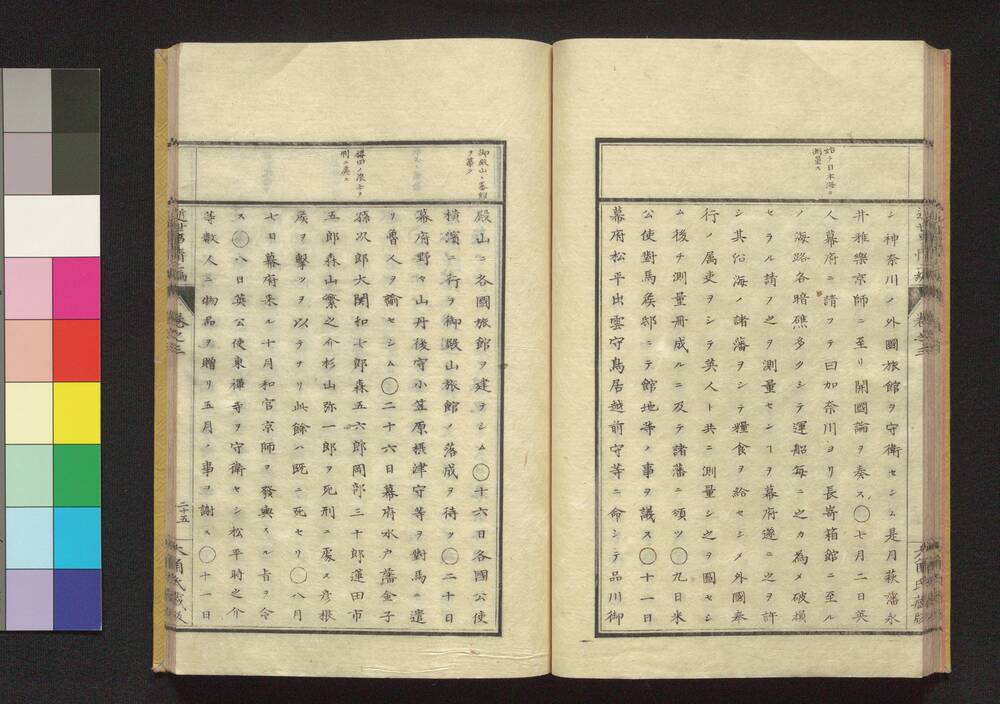 始テ日本海ヲ
測量ス
シ神奈川ノ外國旅館ヲ守衛セシム是月萩藩永
井雅樂京師ニ至リ開國論ヲ奏ス〇七月二日英
人幕府ニ請フテ曰加奈川ヨリ長嵜箱館ニ至ル
ノ海路各暗礁多クシテ運船每ニ之カ為メ破損
セラル請フ之ヲ測量センヿヲ幕府遂ニ之ヲ許
シ其沿海ノ諸藩ヲシテ糧食ヲ給セシメ外國奉
行ノ属吏ヲシテ英人ト共ニ測量シ之ヲ圖セシ
ム後チ測量册成ルニ及テ諸藩ニ頒ツ〇九日米
公使對馬矦邸ニテ館地等ノ事ヲ議ス〇十一日
幕府松平出雲守鳥居越前守等ニ命シテ品川御
御殿山ニ
ヲ築ク
殿山ニ各國旅館ヲ建テシム〇十六日各國公使
橫濱ニ行ヲ御殿山旅館ノ落成ヲ待ツ〇二十日
幕府野々山丹後守小笠原摂津守等ヲ對馬ニ遣
リ魯人ヲ諭セシム〇二十六日幕府水戸藩金子
孫次郎大関和七郎森五六郎岡部三十郎蓮田市
五郎森山繁之介杉山弥一郎ヲ死刑ニ處ス彦根
矦ヲ擊ツヲ以テナリ此餘ハ既ニ死セリ〇八月
七日幕府来ル十月和宮京師ヲ發輿スル旨ヲ令
ス〇八日英公使東禪寺ヲ守衛セシ松平時之介
等數人ニ物品ヲ贈リ五月ノ事ヲ謝ス〇十一日
刑ニ處ス
近世事情二編
卷之三
二十五